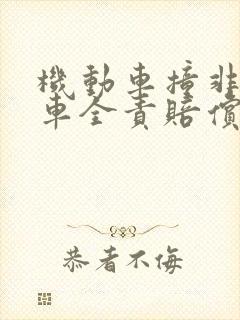 機動車撞非
車全責賠償
恭者不侮